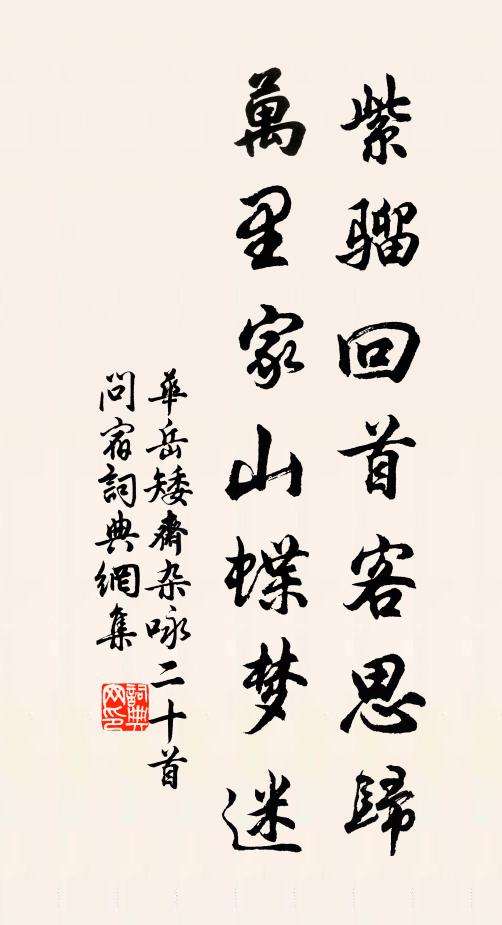 紫骝回首客思歸
萬里家山蝶梦迷
華岳矮齋杂咏二十首
問宿詞典網集
詞典
网印